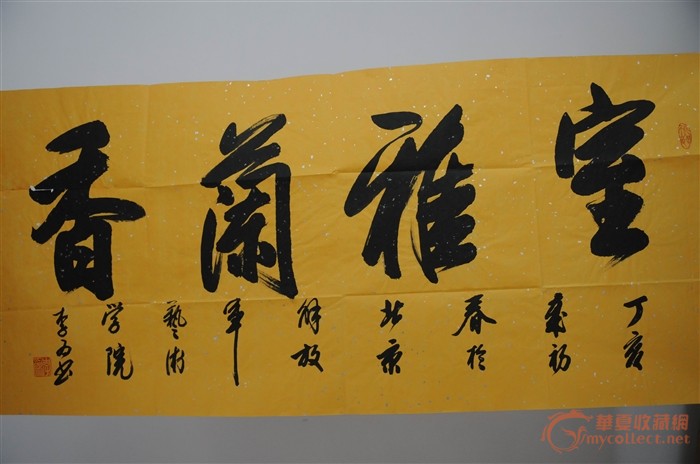 室雅蘭香
丁亥
年初
春於
北京
解放
軍
藝術
学院
李
書
華夏收藏網
mycollect.net